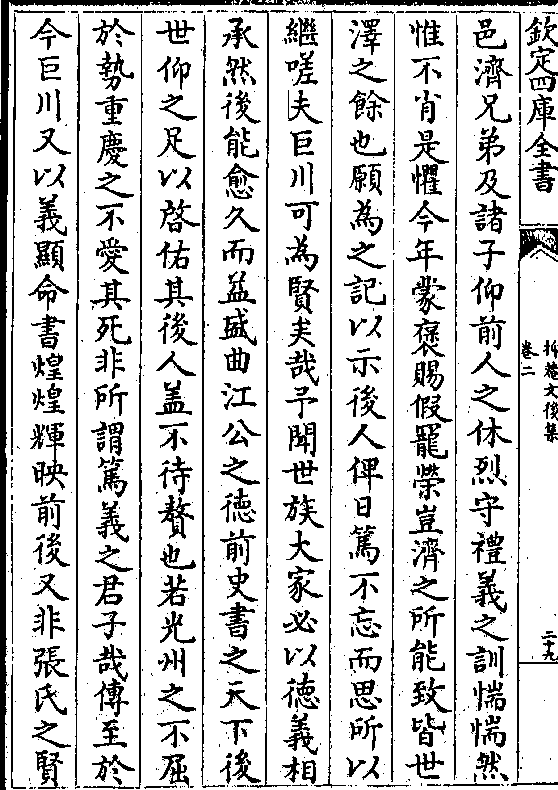 欽定四庫全書
抑菴文後集
卷二
二十九
邑濟兄弟及諸子仰前人之休烈守禮義之訓惴惴然
惟不肖是懼今年蒙褒賜假寵榮豈濟之所能致皆世
澤之餘也願為之記以示後人俾日篤不忘而思所以
繼嗟夫巨川可為賢矣哉予聞世族大家必以徳義相
承然後能愈久而益盛曲江公之徳前史書之天下後
世仰之足以啓佑其後人盖不待贅也若光州之不屈
於勢重慶之不愛其死非所謂篤義之君子哉傳至於
今巨川又以義顯命書煌煌輝映前後又非張氏之賢